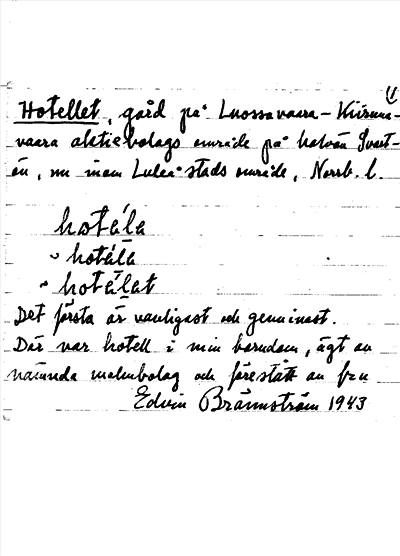 1
Hotellet, gård på Luossavaara-Kiiruna-
vaara aktiebolags område på halvön Svart-
ön, nu inom Luleå stads område, Norrb. l.
hotäla
hotälä
hotälat
Det första är vanligast och genuinast.
Där var hotell i min barndom, ägt av
nämnda malmbolag och förestått av fru
Edvin Brännström 1943